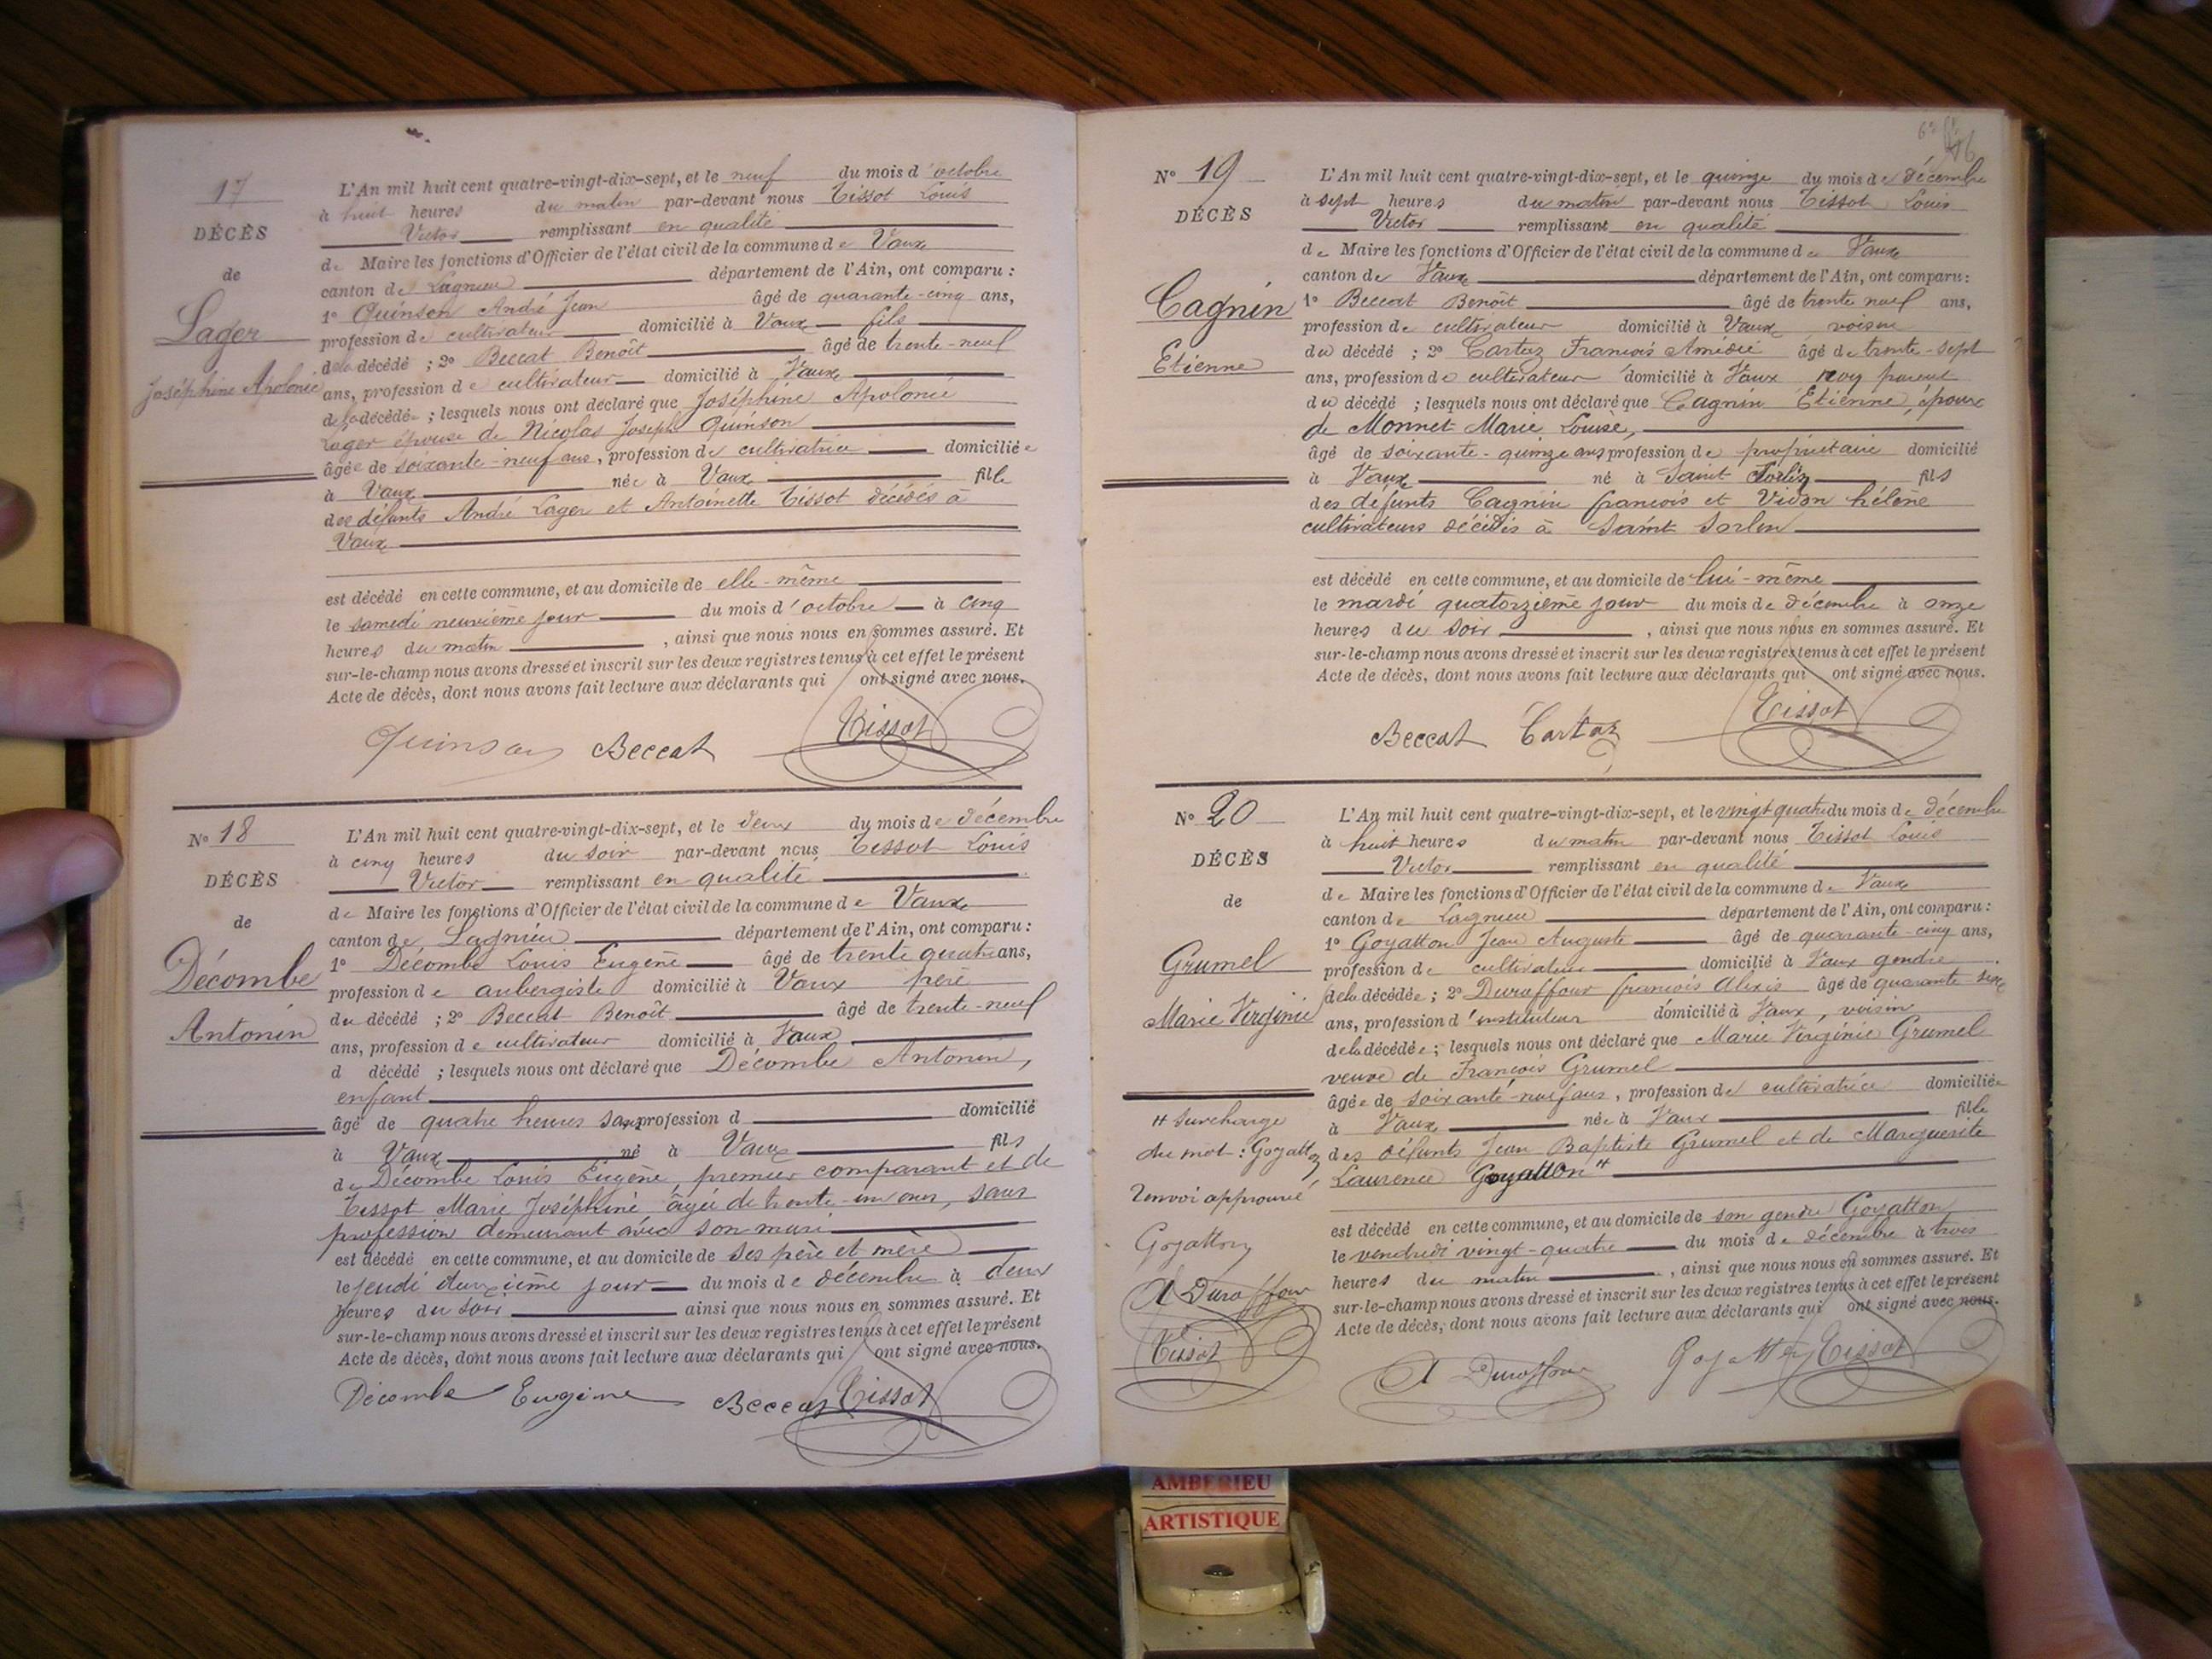 17
DÉCÈS
de
Lager
Joséphine Apolonie
L'An mil huit cent quatre-vingt-dix-sept, et le neuf du mois d'octobre
à huit heures du matin par-devant nous Tissot Louis
Victor remplissant en qualité
de Maire les fonctions d'Officier de l'état civil de la commune de Vaux
canton de Lagnieu département de l'Ain, ont comparu :
1° Quinson André Jean âgé de quarante-cinq ans,
profession de cultivateur domicilié à Vaux fils
de la décédé ; 2° Beccat Benoît âgé de trente-neuf
ans, profession de cultivateur domicilié à Vaux
de la décédée ; lesquels nous ont déclaré que Joséphine Apolonie
Lager épouse de Nicolas Joseph Quinson
âgée de soixante-neuf ans, profession de cultivatrice domiciliée
à Vaux née à Vaux fille
des défunts André Lager et Antoinette Tissot décédés à
Vaux
est décédé en cette commune, et au domicile de elle-même
le samedi neuvième jour du mois d'octobre à cinq
heures du matin , ainsi que nous nous en sommes assuré. Et
sur-le-champ nous avons dressé et inscrit sur les deux registres tenus à cet effet le présent
Acte de décès, dont nous avons fait lecture aux déclarants qui ont signé avec nous.
Quinson Beccat Tissot
N° 18
DÉCÈS
de
Décombe
Antonin
L'An mil huit cent quatre-vingt-dix-sept, et le deux du mois de décembre
à cinq heures du soir par-devant nous Tissot Louis
Victor remplissant en qualité
de Maire les fonctions d'Officier de l'état civil de la commune de Vaux
canton de Lagnieu département de l'Ain, ont comparu :
1° Décombe Louis Eugène âgé de trente quatre ans,
profession de aubergiste domicilié à Vaux père
du décédé ; 2° Beccat Benoît âgé de trente-neuf
ans, profession de cultivateur domicilié à Vaux
d décédé ; lesquels nous ont déclaré que Décombe Antonin,
enfant
âgé de quatre heures sans profession d domicilié
à Vaux né à Vaux fils
de Décombe Louis Eugène, premier comparant et de
Tissot Marie Joséphine âgée de trente-un ans, sans
profession demeurant avec son mari
est décédé en cette commune, et au domicile de ses père et mère
le jeudi deuxième jour du mois de décembre à deux
heures du soir ainsi que nous nous en sommes assuré. Et
sur-le-champ nous avons dressé et inscrit sur les deux registres tenus à cet effet le présent
Acte de décès, dont nous avons fait lecture aux déclarants qui ont signé avec nous.
Décombe Eugène Beccat Tissot
N° 19
DÉCÈS
Cagnin
Etienne
L'An mil huit cent quatre-vingt-dix-sept, et le quinze du mois de décembre
à sept heures du matin par-devant nous Tissot Louis
Victor remplissant en qualité
de Maire les fonctions d'Officier de l'état civil de la commune de Vaux
canton de Vaux département de l'Ain, ont comparu :
1° Beccat Benoît âgé de trente neuf ans,
profession de cultivateur domicilié à Vaux voisin
du décédé ; 2° Cartaz François Amédée âgé de trente-sept
ans, profession de cultivateur domicilié à Vaux non parent
du décédé ; lesquels nous ont déclaré que Cagnin Etienne, époux
de Monnet Marie Louise,
âgé de soixante-quinze ans profession de propriétaire domicilié
à Vaux né à Saint Sorlin fils
des défunts Cagnin françois et Vion hélène
cultivateurs décédés à Saint Sorlin
est décédé en cette commune, et au domicile de lui-même
le mardi quatorzième jour du mois de décembre à onze
heures du soir , ainsi que nous nous en sommes assuré. Et
sur-le-champ nous avons dressé et inscrit sur les deux registres tenus à cet effet le présent
Acte de décès, dont nous avons fait lecture aux déclarants qui ont signé avec nous.
Beccat Cartaz Tissot
N° 20
DÉCÈS
de
Grumel
Marie Virginie
L'An mil huit cent quatre-vingt-dix-sept, et le vingt quatre du mois de décembre
à huit heures du matin par-devant nous Tissot Louis
Victor remplissant en qualité
de Maire les fonctions d'Officier de l'état civil de la commune de Vaux
canton de Lagnieu département de l'Ain, ont comparu :
1° Goyatton Jean Auguste âgé de quarante-cinq ans,
profession de cultivateur domicilié à Vaux gendre
de la décédée ; 2° Duraffour françois Alexis âgé de quarante-six
ans, profession d'instituteur domicilié à Vaux, voisin
de la décédée ; lesquels nous ont déclaré que Marie Virginie Grumel
veuve de François Grumel
âgée de soixante-neuf ans, profession de cultivatrice domiciliée
à Vaux née à Vaux fille
des défunts Jean Baptiste Grumel et de Marguerite
Laurence Goyatton #
# surcharge
du mot : Goyatton
renvoi approuvé
Goyatton
A Duraffour
Tissot
est décédé en cette commune, et au domicile de son gendre Goyatton
le vendredi vingt-quatre du mois de décembre à trois
heures du matin , ainsi que nous nous en sommes assuré. Et
sur-le-champ nous avons dressé et inscrit sur les deux registres tenus à cet effet le présent
Acte de décès, dont nous avons fait lecture aux déclarants qui ont signé avec nous.
A Duraffour Goyatton Tissot
AMBERIEU
ARTISTIQUE